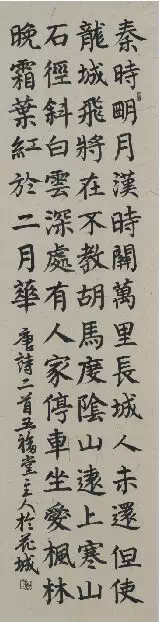 秦時眀月漢時關萬里長城人未還但使
龍城飛將在不教胡馬度陰山遠上寒山
石徑斜白雲深處有人家停車坐愛楓林
晚霜葉紅於二月華
唐詩二首五福堂主人於花城